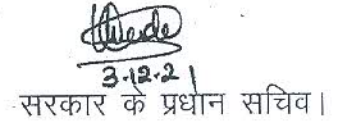 3.12.21
सरकार के प्रधान सचिव।